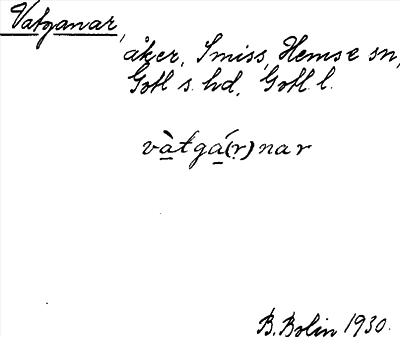 Vatganar,
åker, Smiss, Hemse sn,
Gotl s. hd, Gotl l.
và̱tgá̱(r)nar
B. Bolin 1930.